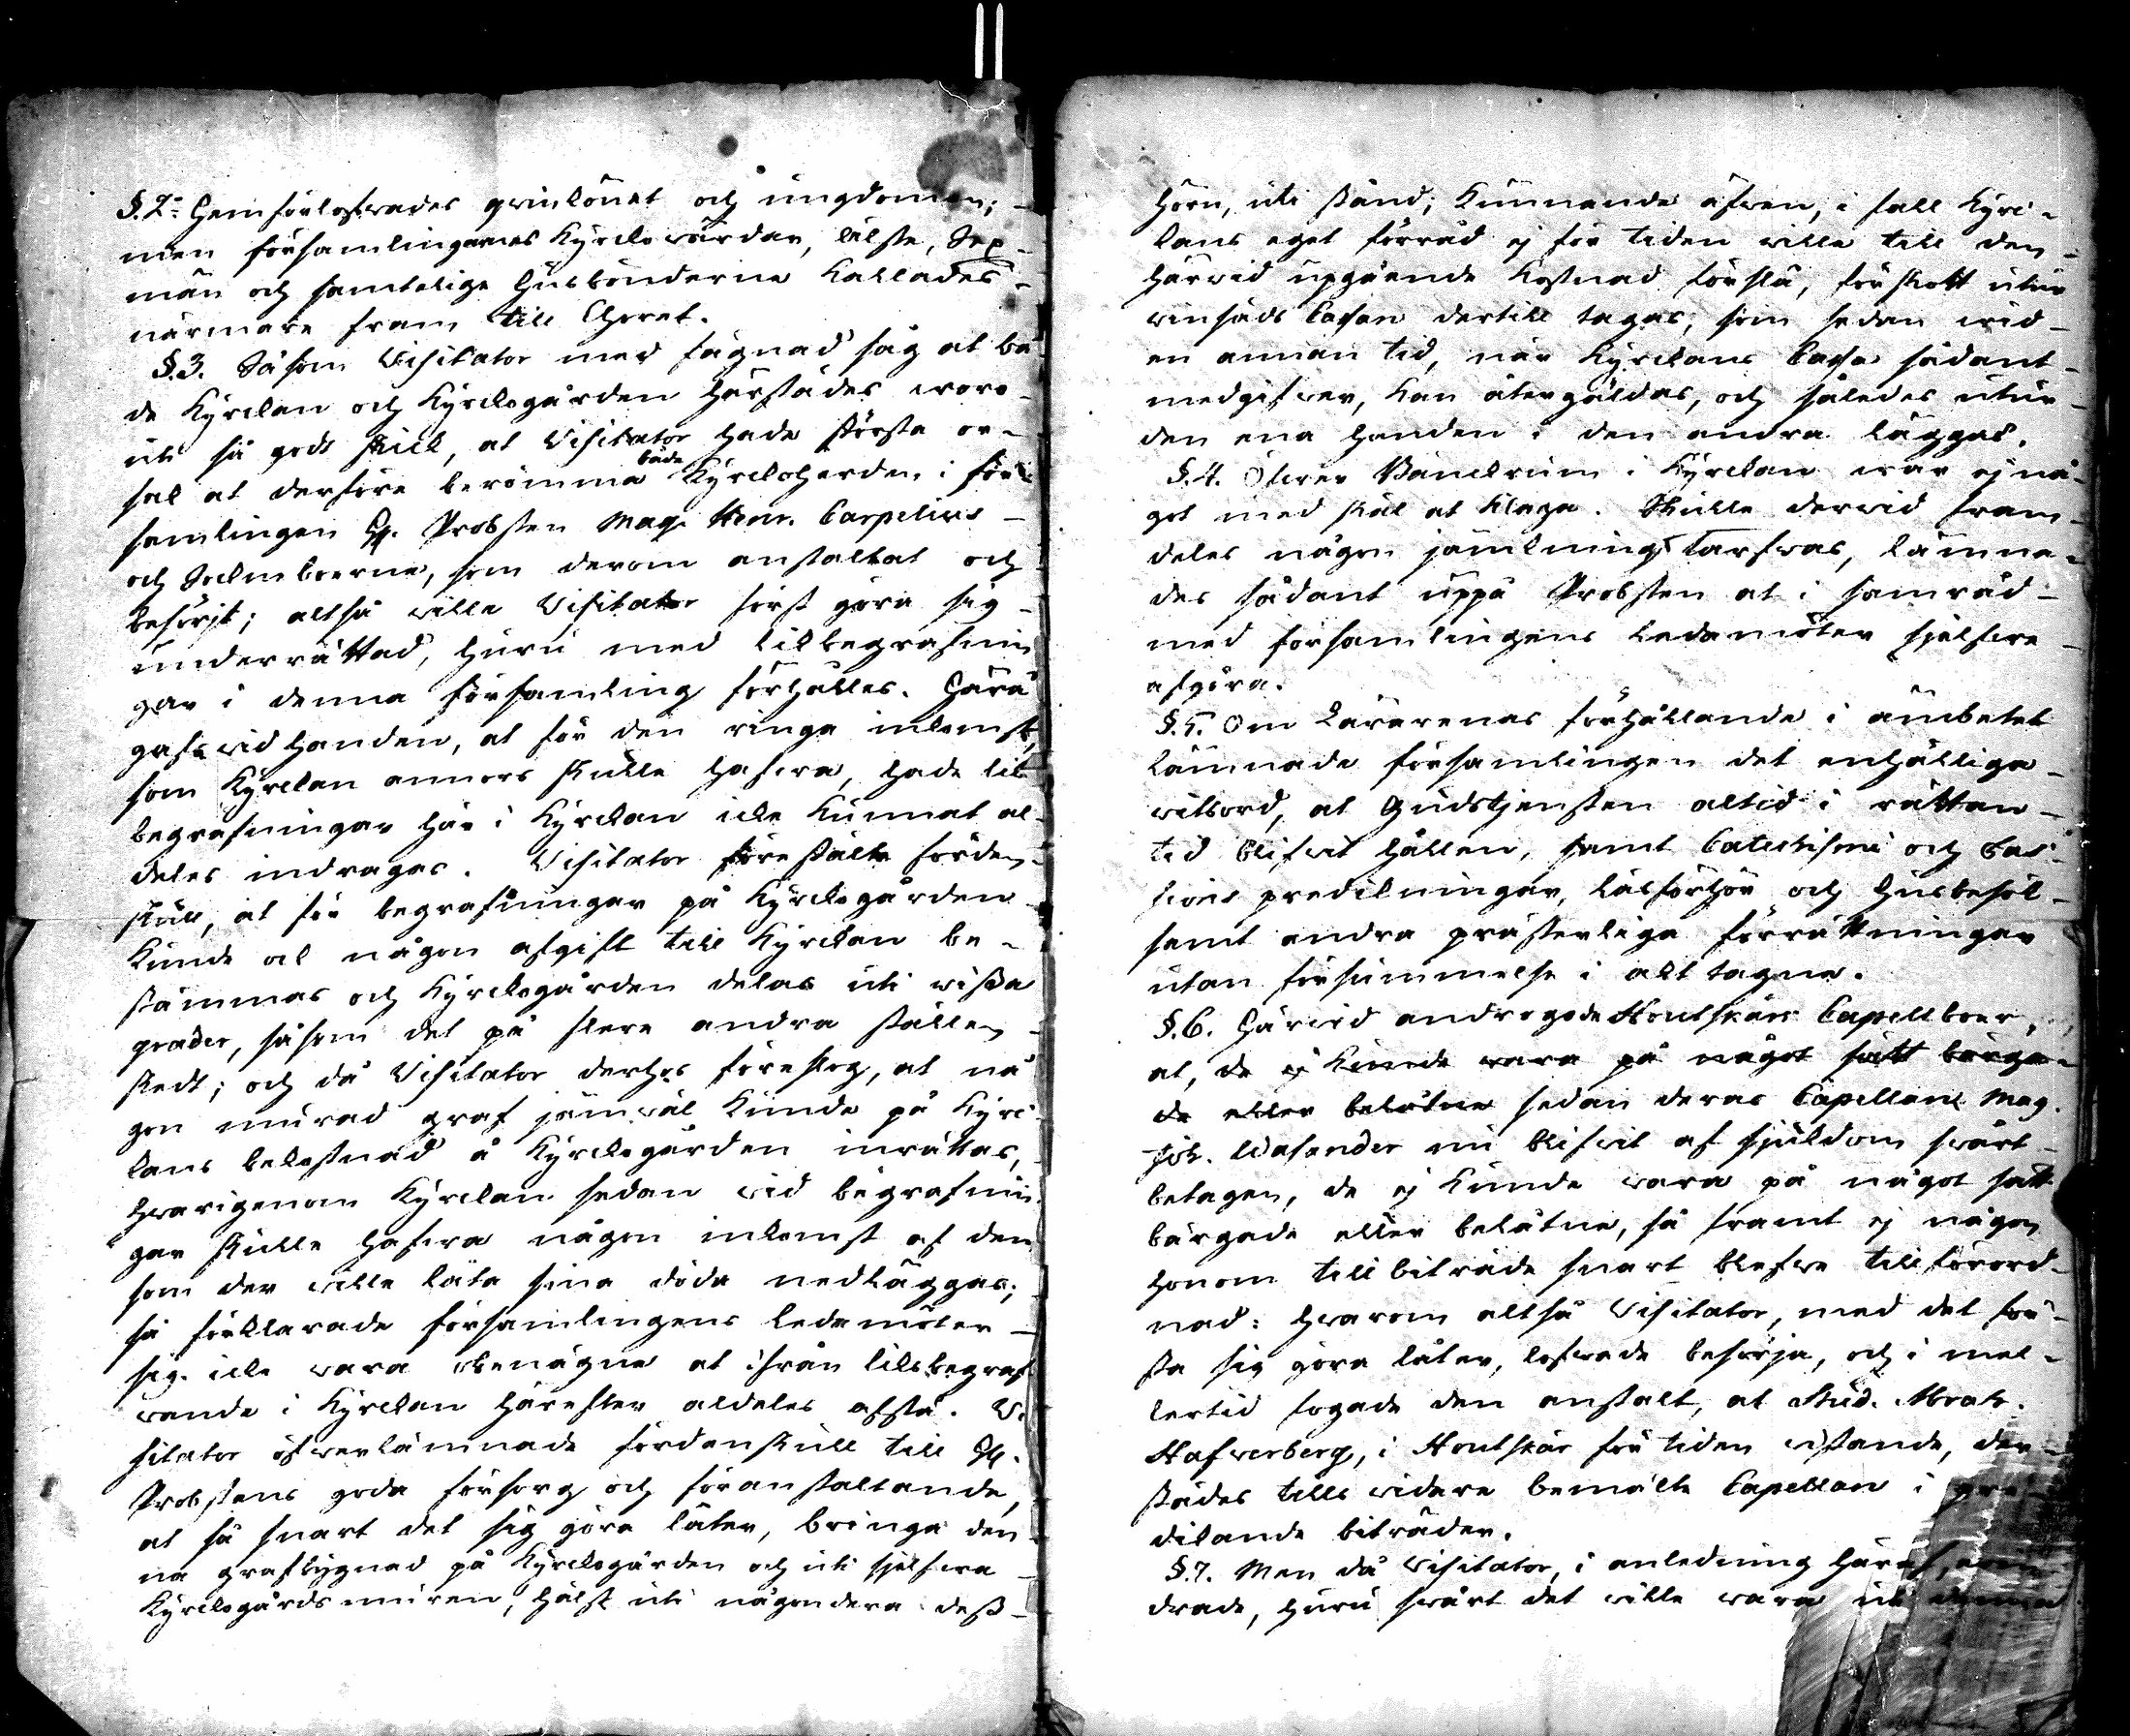 §.2. Hemförlofwades qwinkönet och ungdomen;
men församlingarnes Kyrckowärdar, älste, Sex-
män och samtelige Husbönderne kallades
närmare fram till Choret.
§.3. Såsom Visitator med fägnad såg at bå
de Kyrckan och Kyrckogården härstädes woro
uti så godt skick, at Visitator hade största or-
sak at derföre berömma både Kyrckoherden i för-
samlingen H. Probsten Mag. Henr. Carpelius
och Socknboerne, som derom anstaltat och
besörjt; altså wille Visitator först göra sig
underrättad, huru med likbegrafnin
gar i denna församling förhålles. Härå
gafs wid handen, at för den ringa inkomst,
som Kyrckan annors skulle hafwa, hade lik
begrafningar här i Kyrckan icke kunnat al-
deles indragas. Visitator förestälte förden-
skull, at för begrafningar på Kyrckogården
kunde ock någon afgift till Kyrckan be-
stämmas och Kyrckogården delas uti wissa
grader, såsom det på flere andra ställen
skedt; och då Visitator derhos föreslog, at nå
gon murad graf jämwäl kunde på Kyrc-
kans bekostnad å Kyrckogården inrättas,
hwarigenom Kyrckan sedan wid begrafnin
gar skulle hafwa någon inkomst af den
som der wille låta sina döda nedläggas;
så förklarade församlingens ledamöter
sig icke wara obenägne at ifrån liksbegraf
wande i Kyrckan härefter aldeles afstå. Vi
sitator öfwerlämnade fördenskull till H.
Probstens goda försorg och föranstaltande,
at så snart det sig göra låter, bringa den
na grafbygnad på Kyrckogården och uti sjelfwa
Kyrckogårds muren, hälst uti någondera dess
hörn, uti stånd; kunnande äfwen, i fall Kyrc-
kans eget förråd ej för tiden wille till den
härwid upgående kostnad förslå, förskott utur
winsäds Cassan dertill tagas, som sedan wid
en annan tid, när Kyrckans Cassa sådant
medgifwer, kan återgäldas, och således utur
den ena handen i den andra läggas.
§.4. Öfwer Bänckrum i Kyrckan war ej nå-
got med skäl at klaga. Skulle derwid fram-
deles någon jämkning tarfwas, lämna-
des sådant uppå Probsten at i samråd
med församlingens ledamöter sjelfwe
afgöra.
§.5. Om Lärarenas förhållande i ämbetet
lämnade församlingen det enhälliga
witsord, at Gudstjensten altid i rättan
tid blifwit hållen, samt Catechismi och Pas-
sions predikningar, läsförhör och husbesök
samt andra prästerliga förrättningar
utan försummelse i akt tagne.
§.6. Härwid androgode Houtskärs Capellboer,
at, de ej kunde wara på något sätt bärga-
de eller belåtne sedan deras Capellan Mag.
Joh. Wasander nu blifwit af sjukdom swårt
betagen, de ej kunde wara på något sätt
bärgade eller belåtne, så framt ej någon
honom till biträde snart blefwe till förord-
nad: hwarom altså Visitator, med det för-
sta sig göra låter, lofwade besörja, och i mel-
lertid fogade den anstalt, at Stud. Abrah.
Hafwerberg, i Houtskär för tiden wistande, der-
städes tills widare bemälte Capellan i pre-
dikande biträder.
§.7. Men då Visitator, i anledning häraf,
drade, huru swårt det wille wara uti denna